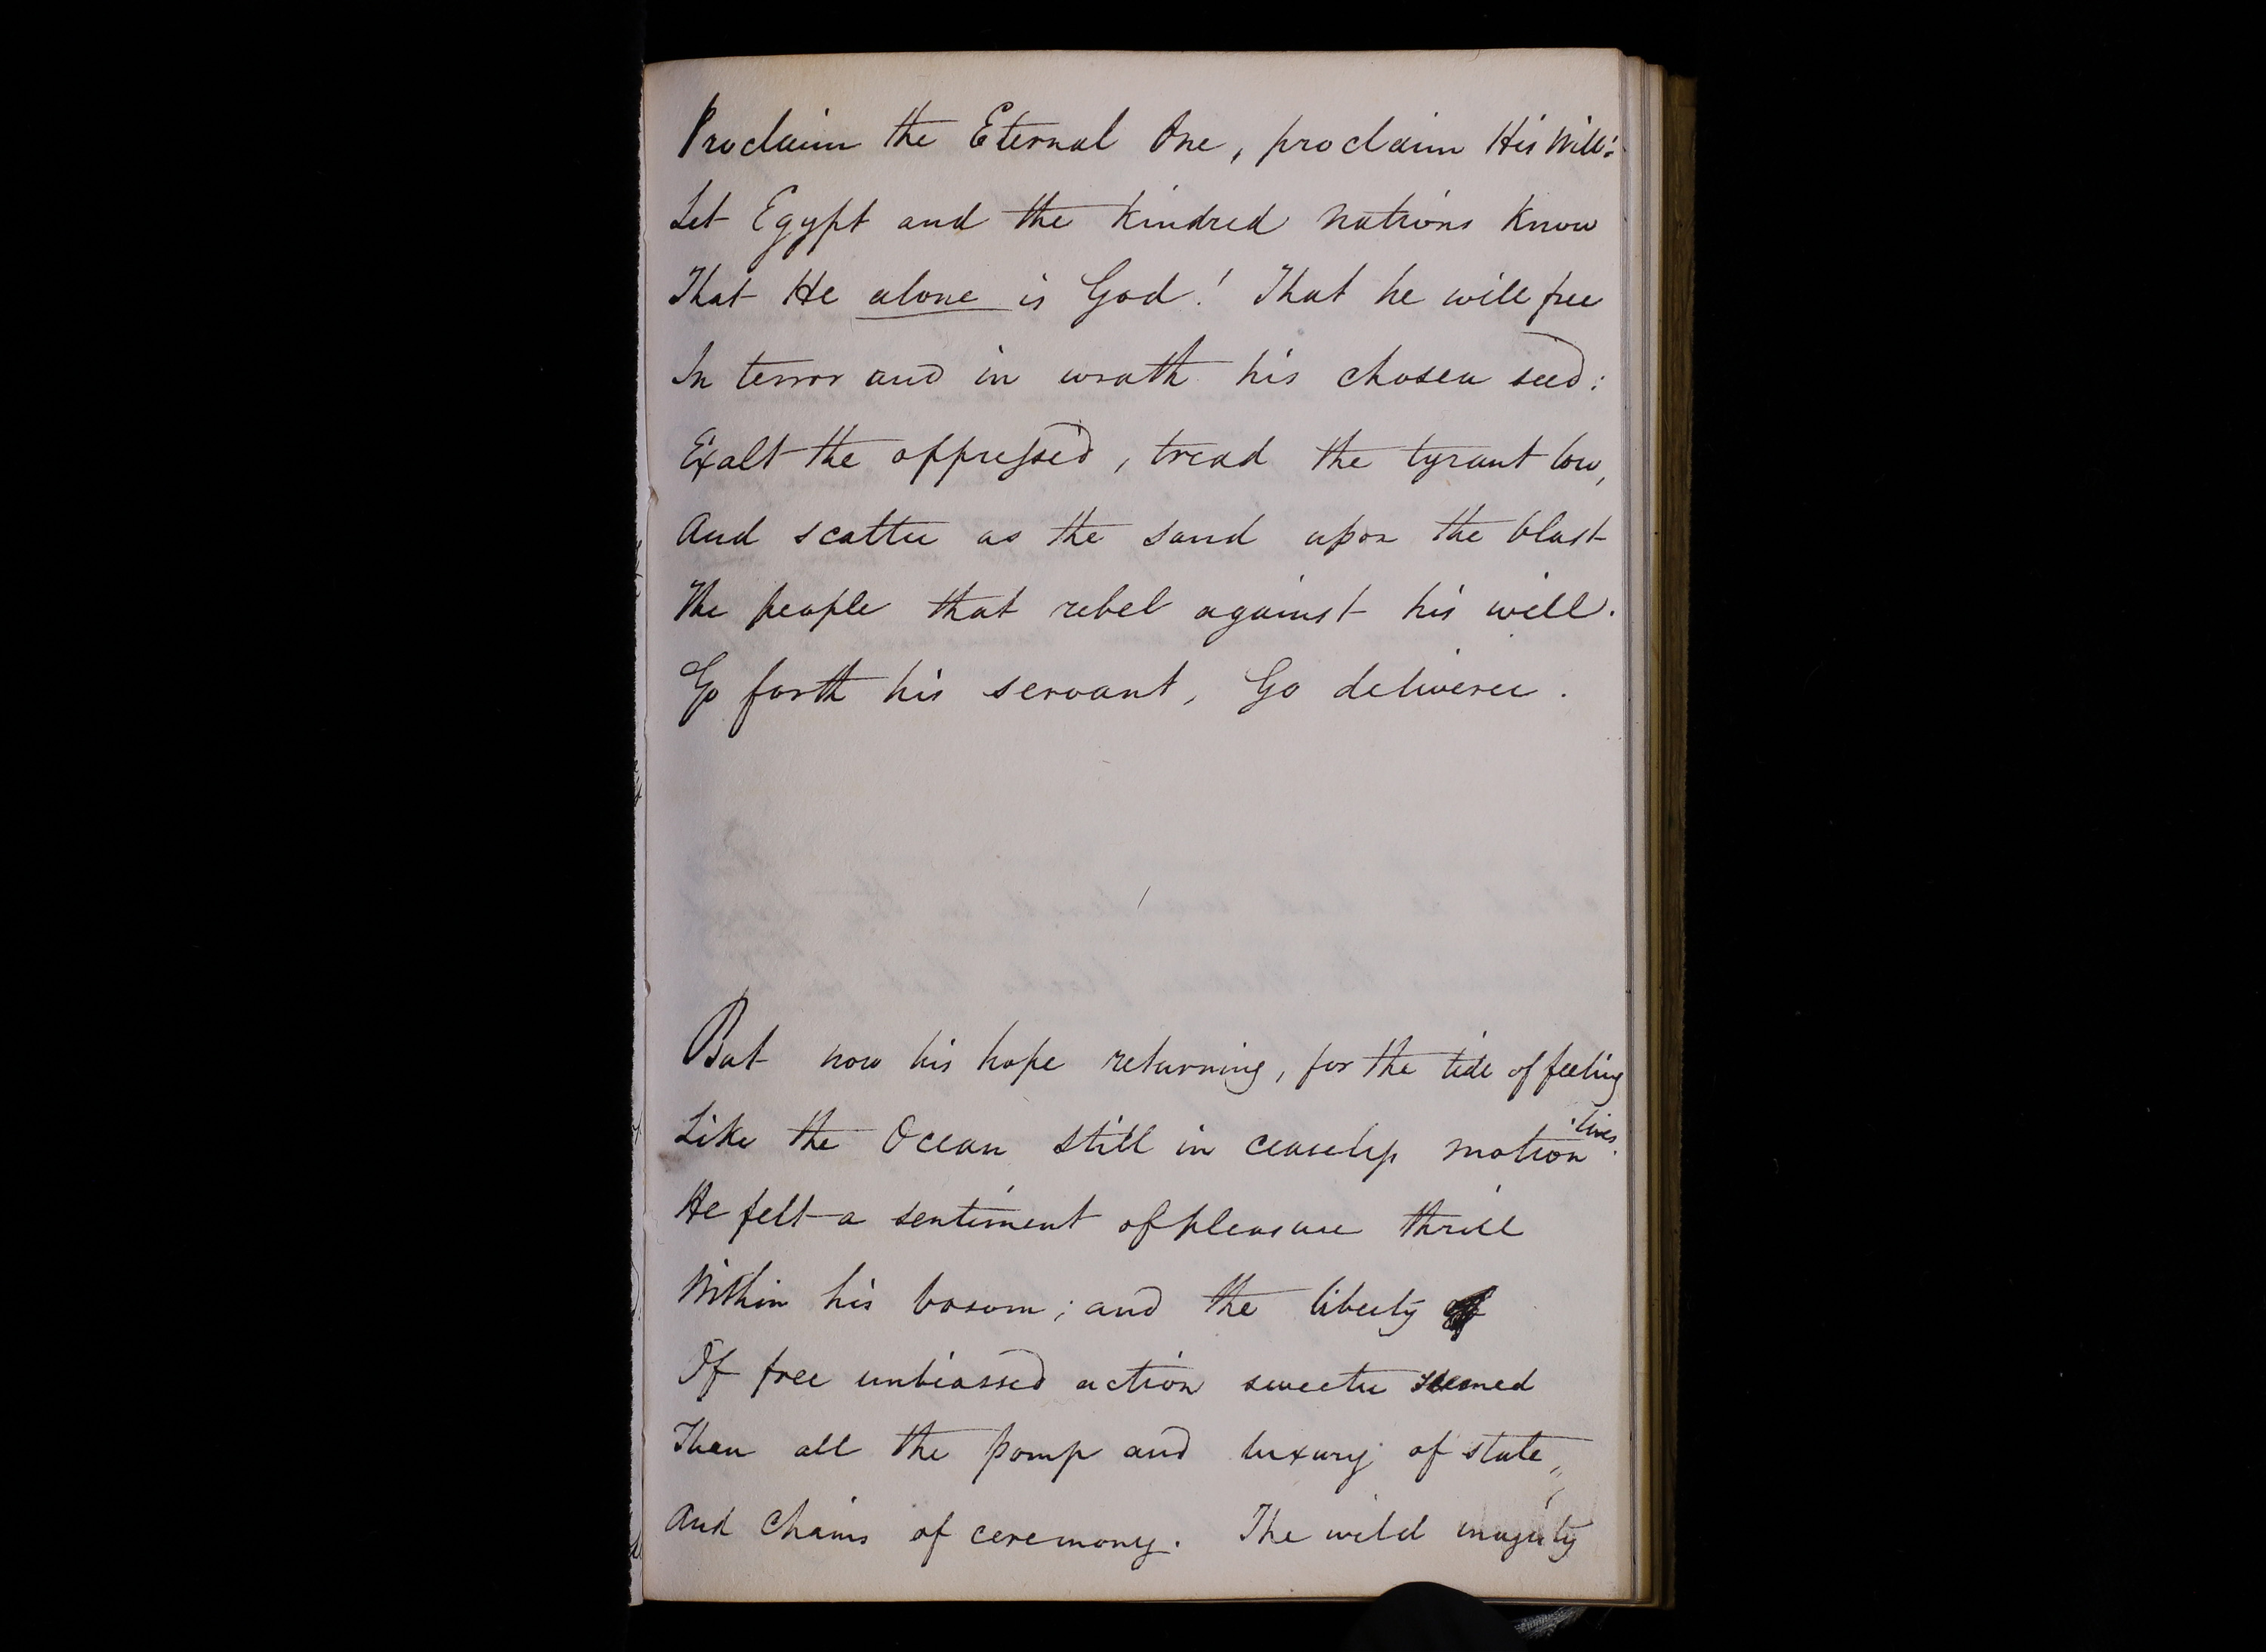 Proclaim the Eternal One, proclaim His Will:
Let Egypt and the kindred nations know
That He alone is God! That he will free
In terror and in wrath his chosen seed:
Exalt the oppressed, tread the tyrant low,
And scatter as the sand upon the blast
The people that rebel against his will.
Go forth his servant, Go deliverer.
But now his hope returning, for the tide of feeling
Like the Ocean still in ceaseless motion lives.
He felt a sentiment of pleasure thrill
Within his bosom; and the liberty
Of free unbiassed action sweeter seemed
Than all the pomp and luxury of state,
And Chains of ceremony. The wild majesty